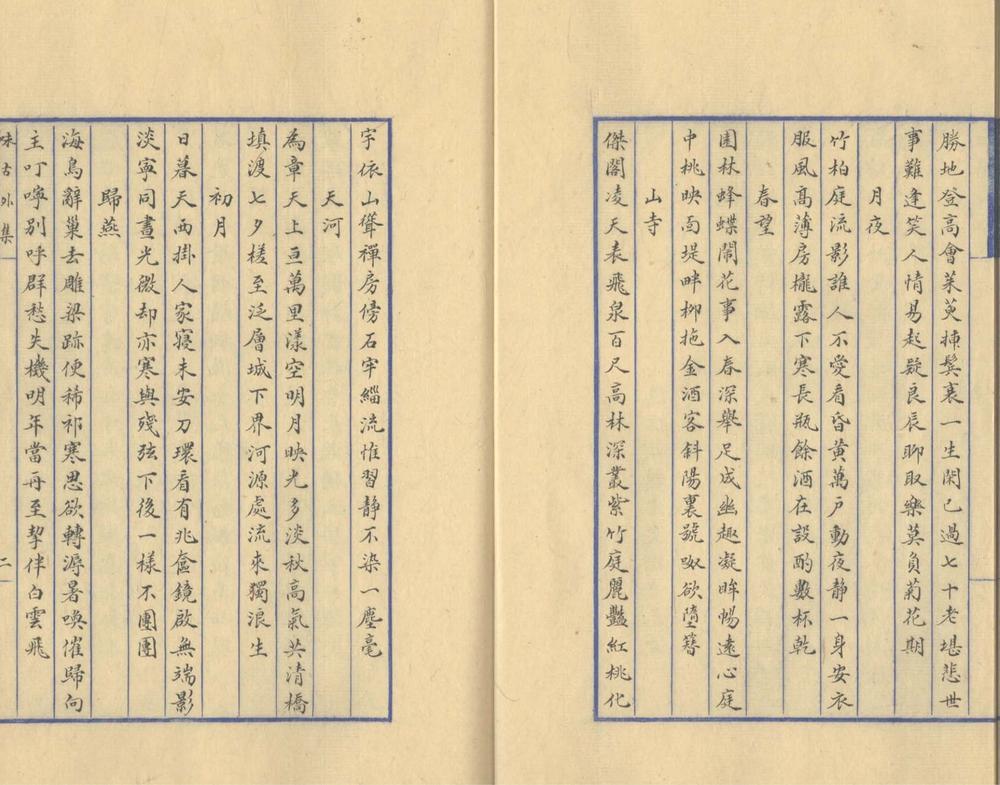 勝地登高會茱萸揷鬓裏一生閑已過七十老堪悲世
事難逢笑人情易起疑良辰聊取樂莫負菊花期
月夜
竹柏庭流影誰人不愛看昏黄萬戸動夜静一身安衣
服風髙薄房櫳露下寒長瓶餘酒在設酌數杯乾
春望
園林蜂蝶鬧花事入春深舉足成幽趣凝眸暢遠心庭
中桃映面堤畔栁拖金酒客斜陽裏號呶欲墮簪
山寺
傑閣凌天表飛泉百尺高林深叢紫竹庭麗豔紅桃化
宇依山聳禪房傍石牢緇流惟習静不染一塵毫
天河
為章天上亘萬里漾空明月映光多淡秋高氣共清橋
填渡七夕槎至泛層城下界河源處流來獨浪生
初月
日暮天西掛人家寝未安刀環看有兆奩鏡啟無端影
淡寧同晝光微却亦寒與殘弦下後一樣不團團
歸燕
海鳥辭巢去雕梁跡便稀祁寒思欲轉溽暑喚催歸向
主叮嚀别呼群愁失機明年當再至挈伴白雲飛
味古外集
二